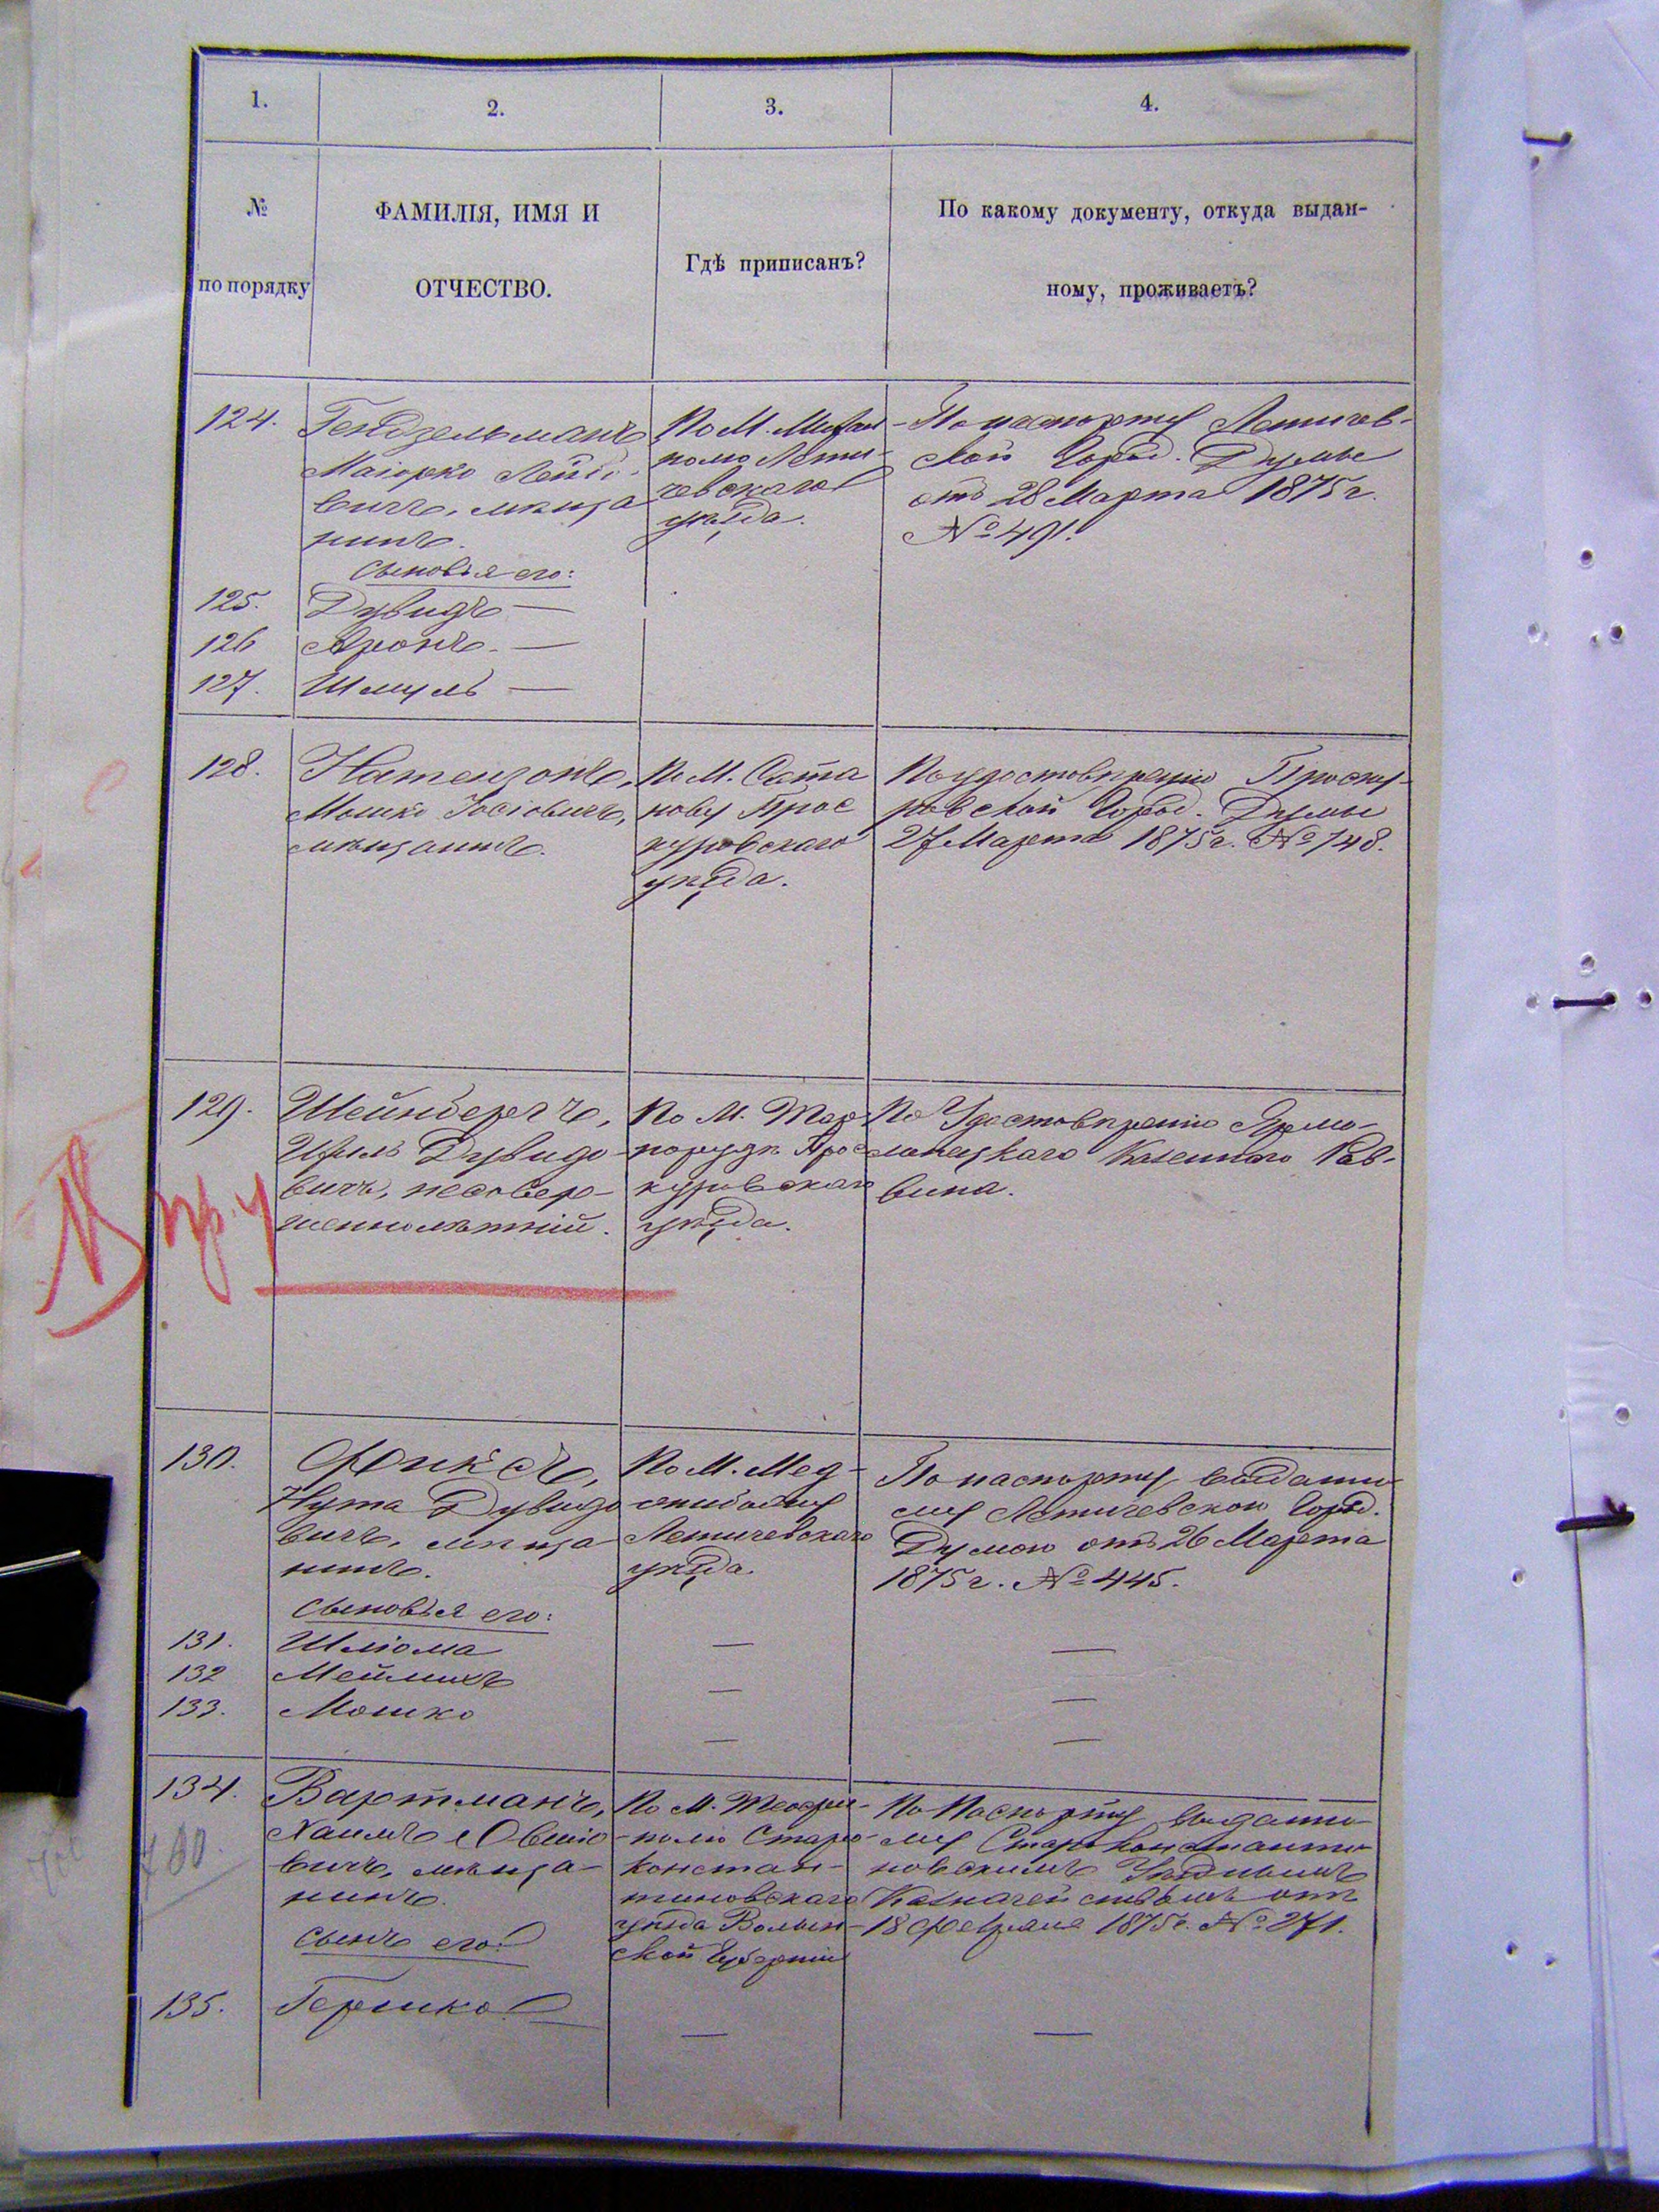 1.
2.
3.
4.
№
по порядку
ФАМИЛІЯ, ИМЯ И
ОТЧЕСТВО.
Гдѣ приписанъ?
По какому документу, откуда выдан-
ному, проживаетъ?
124.
Гендзельманъ
Маіорко Лейбо-
вичъ, мѣща
нинъ.
По М.
полю Лети-
чевскаго
уѣзда.
По паспорту Летичев-
ской Город. Думы
отъ 28 Марта 1875 г.
№ 491.
сыновья его:
125.
Дувидъ —
126
Аронъ. —
127.
Шмуль —
128.
Натензонъ,
Мошко Іосіовичъ,
мѣщанинъ.
По М. Сата
нову Прос
куровскаго
уѣзда.
По удостовѣренію Проску-
ровской Город. Думы
27 Марта 1875 г. № 748.
129.
Шейнбергъ,
Дувидо-
вичъ, несовер-
шеннолѣтній.
По М.
Прос
куровскаго
уѣзда.
По Удостовѣренію Ярмо-
линецкаго Казеннаго Рав-
вина.
130.
Фуксъ,
Нута Дувидо
вичъ, мѣща
нинъ.
По М. Мед-
жибожу
Летичевскаго
уѣзда.
По паспорту выданно-
му Летичевскою Город.
Думою отъ 26 Марта
1875 г. № 445.
сыновья его:
131.
Шліома
—
—
132
Мейлихъ
—
—
133.
Мошко
—
—
134.
Вартманъ,
Хаимъ Овшіо
вичъ, мѣща-
нинъ.
По М. Теофи-
полю Старо-
констан-
тиновскаго
уѣзда Волын-
ской Губерніи
По Паспорту выданно-
му Староконстанти-
новскимъ Уѣзднымъ
Казначействомъ отъ
18 февраля 1875 г. № 271.
сынъ его:
135.
Гершко —
—
—